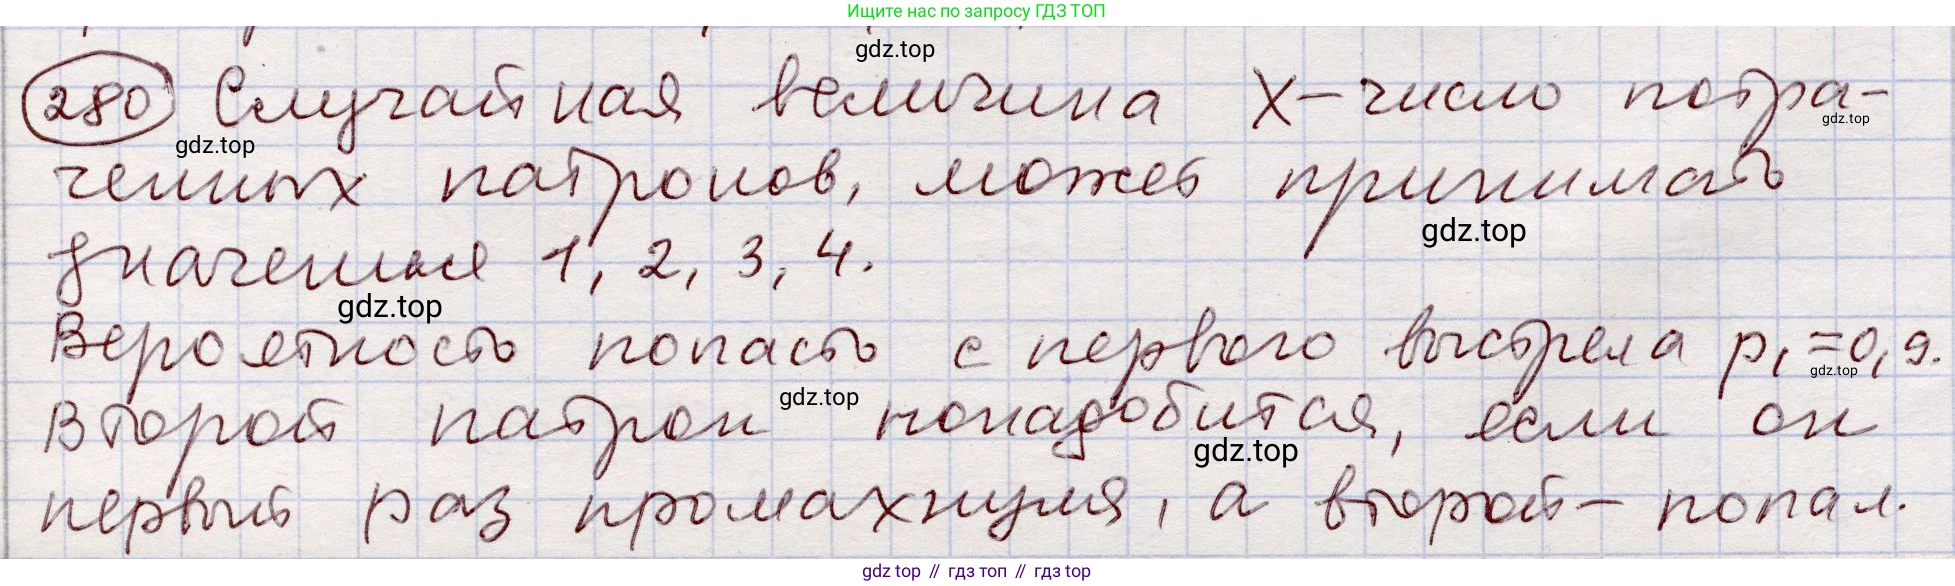 Ищите нас по запросу ГДЗ ТОП
gdz.top
280 Случайная величина X – число потра-
gdz.top
gdz.top
ченных патронов, может принимать
gdz.top
значения 1, 2, 3, 4.
gdz.top
Вероятность попасть с первого выстрела p₁ = 0,9.
gdz.top
gdz.top
Второй патрон понадобится, если он
gdz.top
первый раз промахнулся, а второй – попал.
gdz top // гдз топ // гдз top